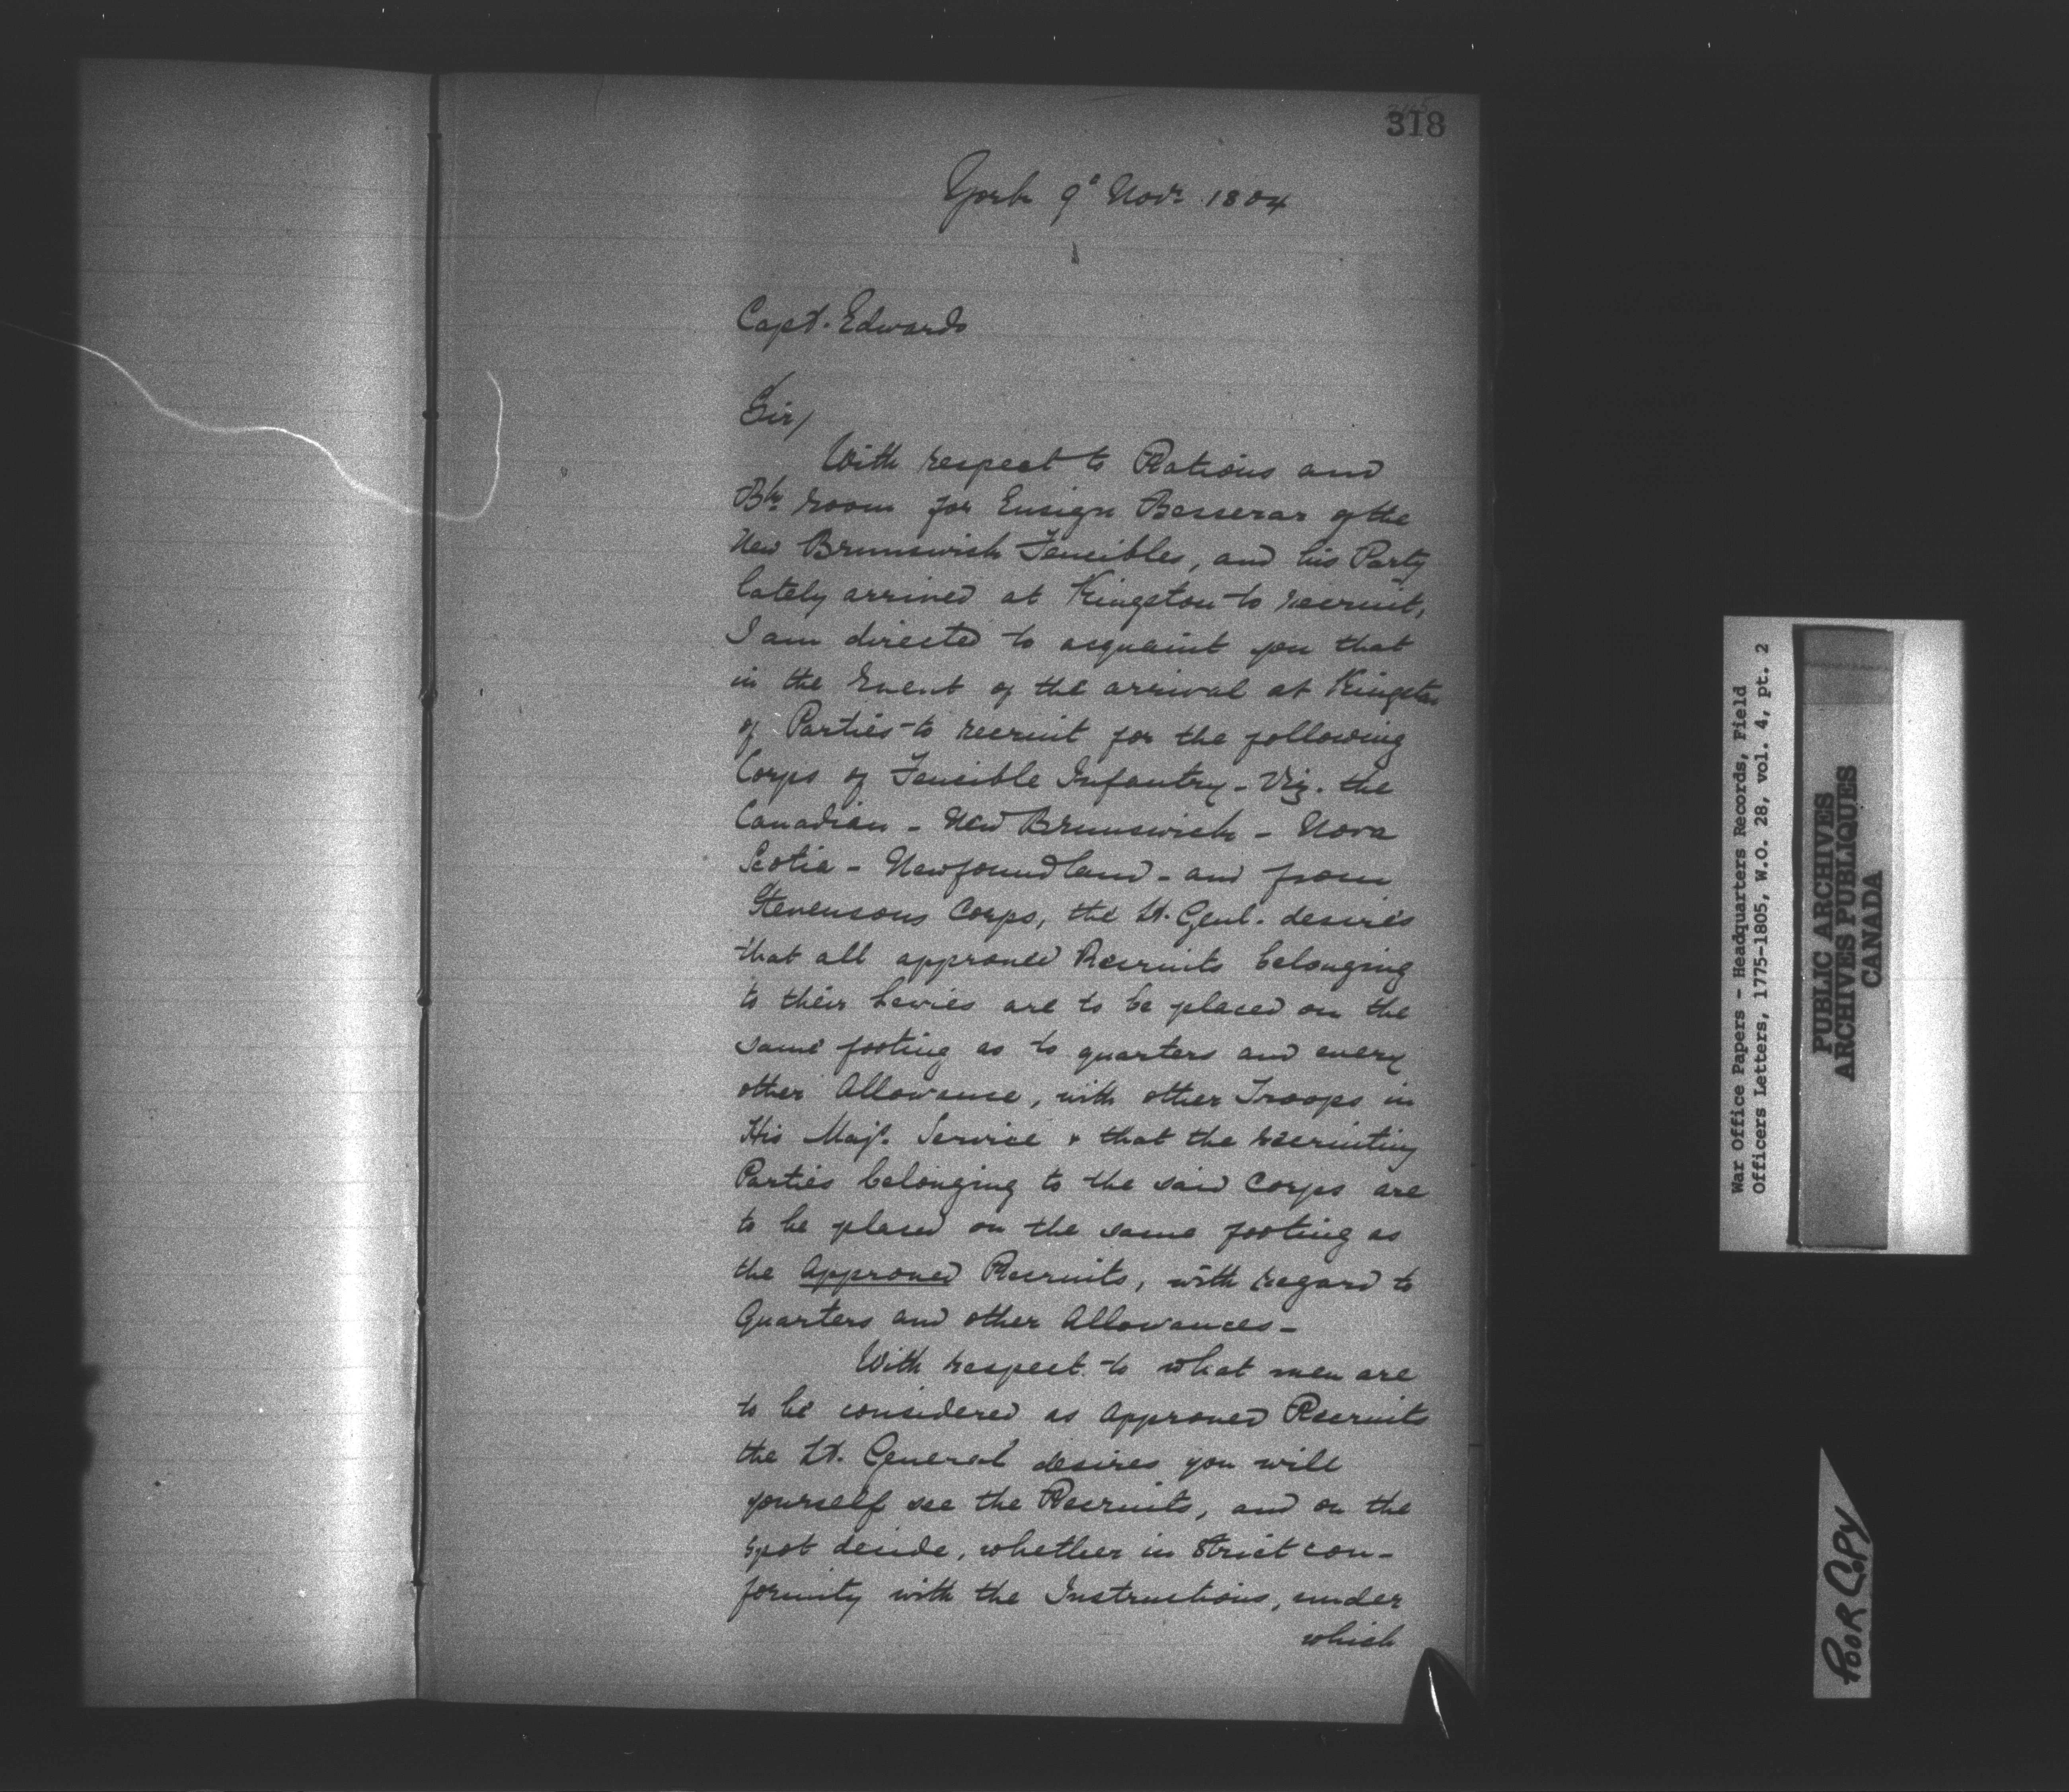 318
York 9th Novr 1804
Capt. Edwards
Sir/
With respect to Rations and
Bk room for Ensign Besserar of the
New Brunswick Fencibles, and his Party
lately arrived at Kingston to recruit,
I am directed to acquaint you that
in the Event of the arrival at Kingston
of Parties to recruit for the following
Corps of Fencible Infantry - Viz. the
Canadian - New Brunswick - Nova
Scotia - Newfoundland - and from
Stevensons Corps, the Lt. Genl. desires
that all approved Recruits belonging
to their Levies are to be placed on the
same footing as to quarters and every
other Allowance, with other Troops in
His Majs. Service & that the recruiting
Parties belonging to the said Corps are
to be placed on the same footing as
the Approved Recruits, with regard to
Quarters and other Allowances -
With respect to what men are
to be considered as Approved Recruits
the Lt. General desires you will
yourself see the Recruits, and on the
spot decide, whether in strict con-
formity with the Instructions, under
which
War Office Papers - Headquarters Records, Field
Officers Letters, 1775-1805, W.O. 28, vol. 4, pt. 2
PUBLIC ARCHIVES
ARCHIVES PUBLIQUES
CANADA
POOR COPY